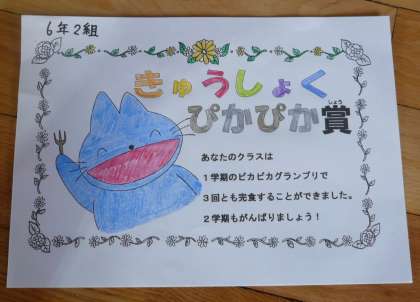 6年2組
きゅうしょく
ぴかぴか賞
しょう
あなたのクラスは
1学期のピカピカグランプリで
3回とも完食することができました。
2学期もがんばりましょう！